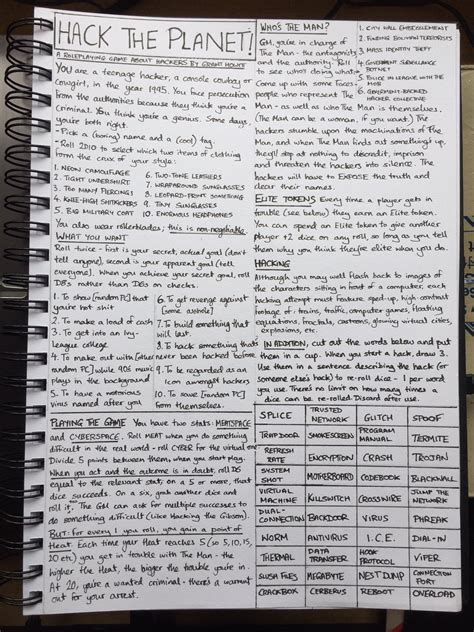 HACK THE PLANET!
A ROLEPLAYING GAME ABOUT HACKERS BY GRANT HOWITT
YOU are a teenage hacker, a console cowboy or
cowgirl, in the year 1995. You face persecution
from the authorities because they think you're a
criminal. You think you're a genius. Some days,
you're both right.
- Pick a (boring) name and a (cool) tag.
- Roll 2D10 to select which two items of clothing
form the crux of your style:
1. NEON CAMOUFLAGE
2. TIGHT UNDERSHIRT
3. TOO MANY PIERCINGS
4. KNEE-HIGH SHITKICKERS
5. BIG MILITARY COAT
6. TWO-TONE LEATHERS
7. WRAPAROUND SUNGLASSES
8. LEOPARD-PRINT SOMETHING
9. TINY SUNGLASSES
10. ENORMOUS HEADPHONES
You also wear rollerblades; this is non-negotiable.
WHAT YOU WANT
Roll twice - first is your secret, actual goal (don't
tell anyone), second is your apparent goal (tell
everyone). When you achieve your secret goal, roll
D8s rather than D6s on hacks.
1. To show [random PC] that
you're hot shit
2. To make a load of cash
3. To get into an Ivy-
league college
4. To make out with [other
random PC] while 90s music
plays in the background
5. To have a notorious
virus named after you
6. To get revenge against
[some asshole]
7. To build something that
will last.
8. To hack something that's
never been hacked before
9. To be regarded as an
icon amongst hackers
10. To save [random PC]
from themselves.
PLAYING THE GAME You have two stats: MEATSPACE
and CYBERSPACE. Roll MEAT when you do something
difficult in the real world - roll CYBER for the virtual one.
Divide 5 points between them, when you start play.
When you act and the outcome is in doubt, roll D6
equal to the relevant stat; on a 5 or more, that
dice succeeds. On a six, grab another dice and
roll it. The GM can ask for multiple successes to
do something difficult (like Hacking the Gibson).
BUT: for every 1 you roll, you gain a point of
Heat. Each time your Heat reaches 5 (so 5, 10, 15,
20 etc) you get in trouble with The Man - the
higher the Heat, the bigger the trouble you're in.
At 20, you're a wanted criminal - there's a warrant
out for your arrest.
WHO'S THE MAN?
GM, you're in charge of
The Man - the antagonists
and the authority. Roll
to see who's doing what:
Come up with some faces -
people who represent The
Man - as well as who The Man is themselves.
(The Man can be a woman, if you want.) The
hackers stumble upon the machinations of The
Man, and when The Man finds out
they'll stop at nothing to discredit, imprison
and threaten the hackers into silence. The
hackers will have to EXPOSE the truth and
clear their names.
1. CITY HALL EMBEZZLEMENT
2. FUNDING BOLIVIAN TERRORISTS
3. MASS IDENTITY THEFT
4. GOVERNMENT SURVEILLANCE
BOTNET
5. POLICE IN LEAGUE WITH THE
MOB
6. GOVERNMENT-BACKED
HACKER COLLECTIVE
ELITE TOKENS Every time a player gets in
trouble (see below) they earn an Elite token.
You can spend an Elite token to give another
player +2 dice on any roll, so long as you tell
them why you think they're elite when you do.
HACKING
Although you may well flash back to images of
the characters sitting in front of a computer, each
hacking attempt must feature sped-up, high-contrast
footage of: trains, traffic, computer games, floating
equations, fractals, cartoons, glowing virtual cities,
explosions, etc.
IN ADDITION, cut out the words below and put
them in a cup. When you start a hack, draw 3.
Use them in a sentence describing the hack (or
someone else's hack) to re-roll dice - 1 per word
you use. There's no limit on how many times a
dice can be re-rolled. Discard after use.
SPLICE TRUSTED NETWORK GLITCH SPOOF
TRAPDOOR SMOKESCREEN PROGRAM MANUAL TERMITE
REFRESH RATE ENCRYPTION CRASH TROJAN
SYSTEM SHOT MOTHERBOARD CODEBOOK BLACKWALL
VIRTUAL MACHINE KILLSWITCH CROSSWIRE JUMP THE NETWORK
DUAL-CONNECTION BACKDOOR VIRUS PHREAK
WORM ANTIVIRUS I.C.E. DOWNLOAD
THERMAL DATA TRANSFER HOOK PROTOCOL VIPER
SLUSH FILES MEGABYTE NEST DUMP CONNECTION PORT
CRACKBOX CERBERUS REBOOT OVERLOAD